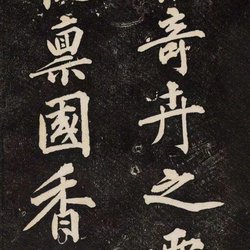 奇卉之
稟國香